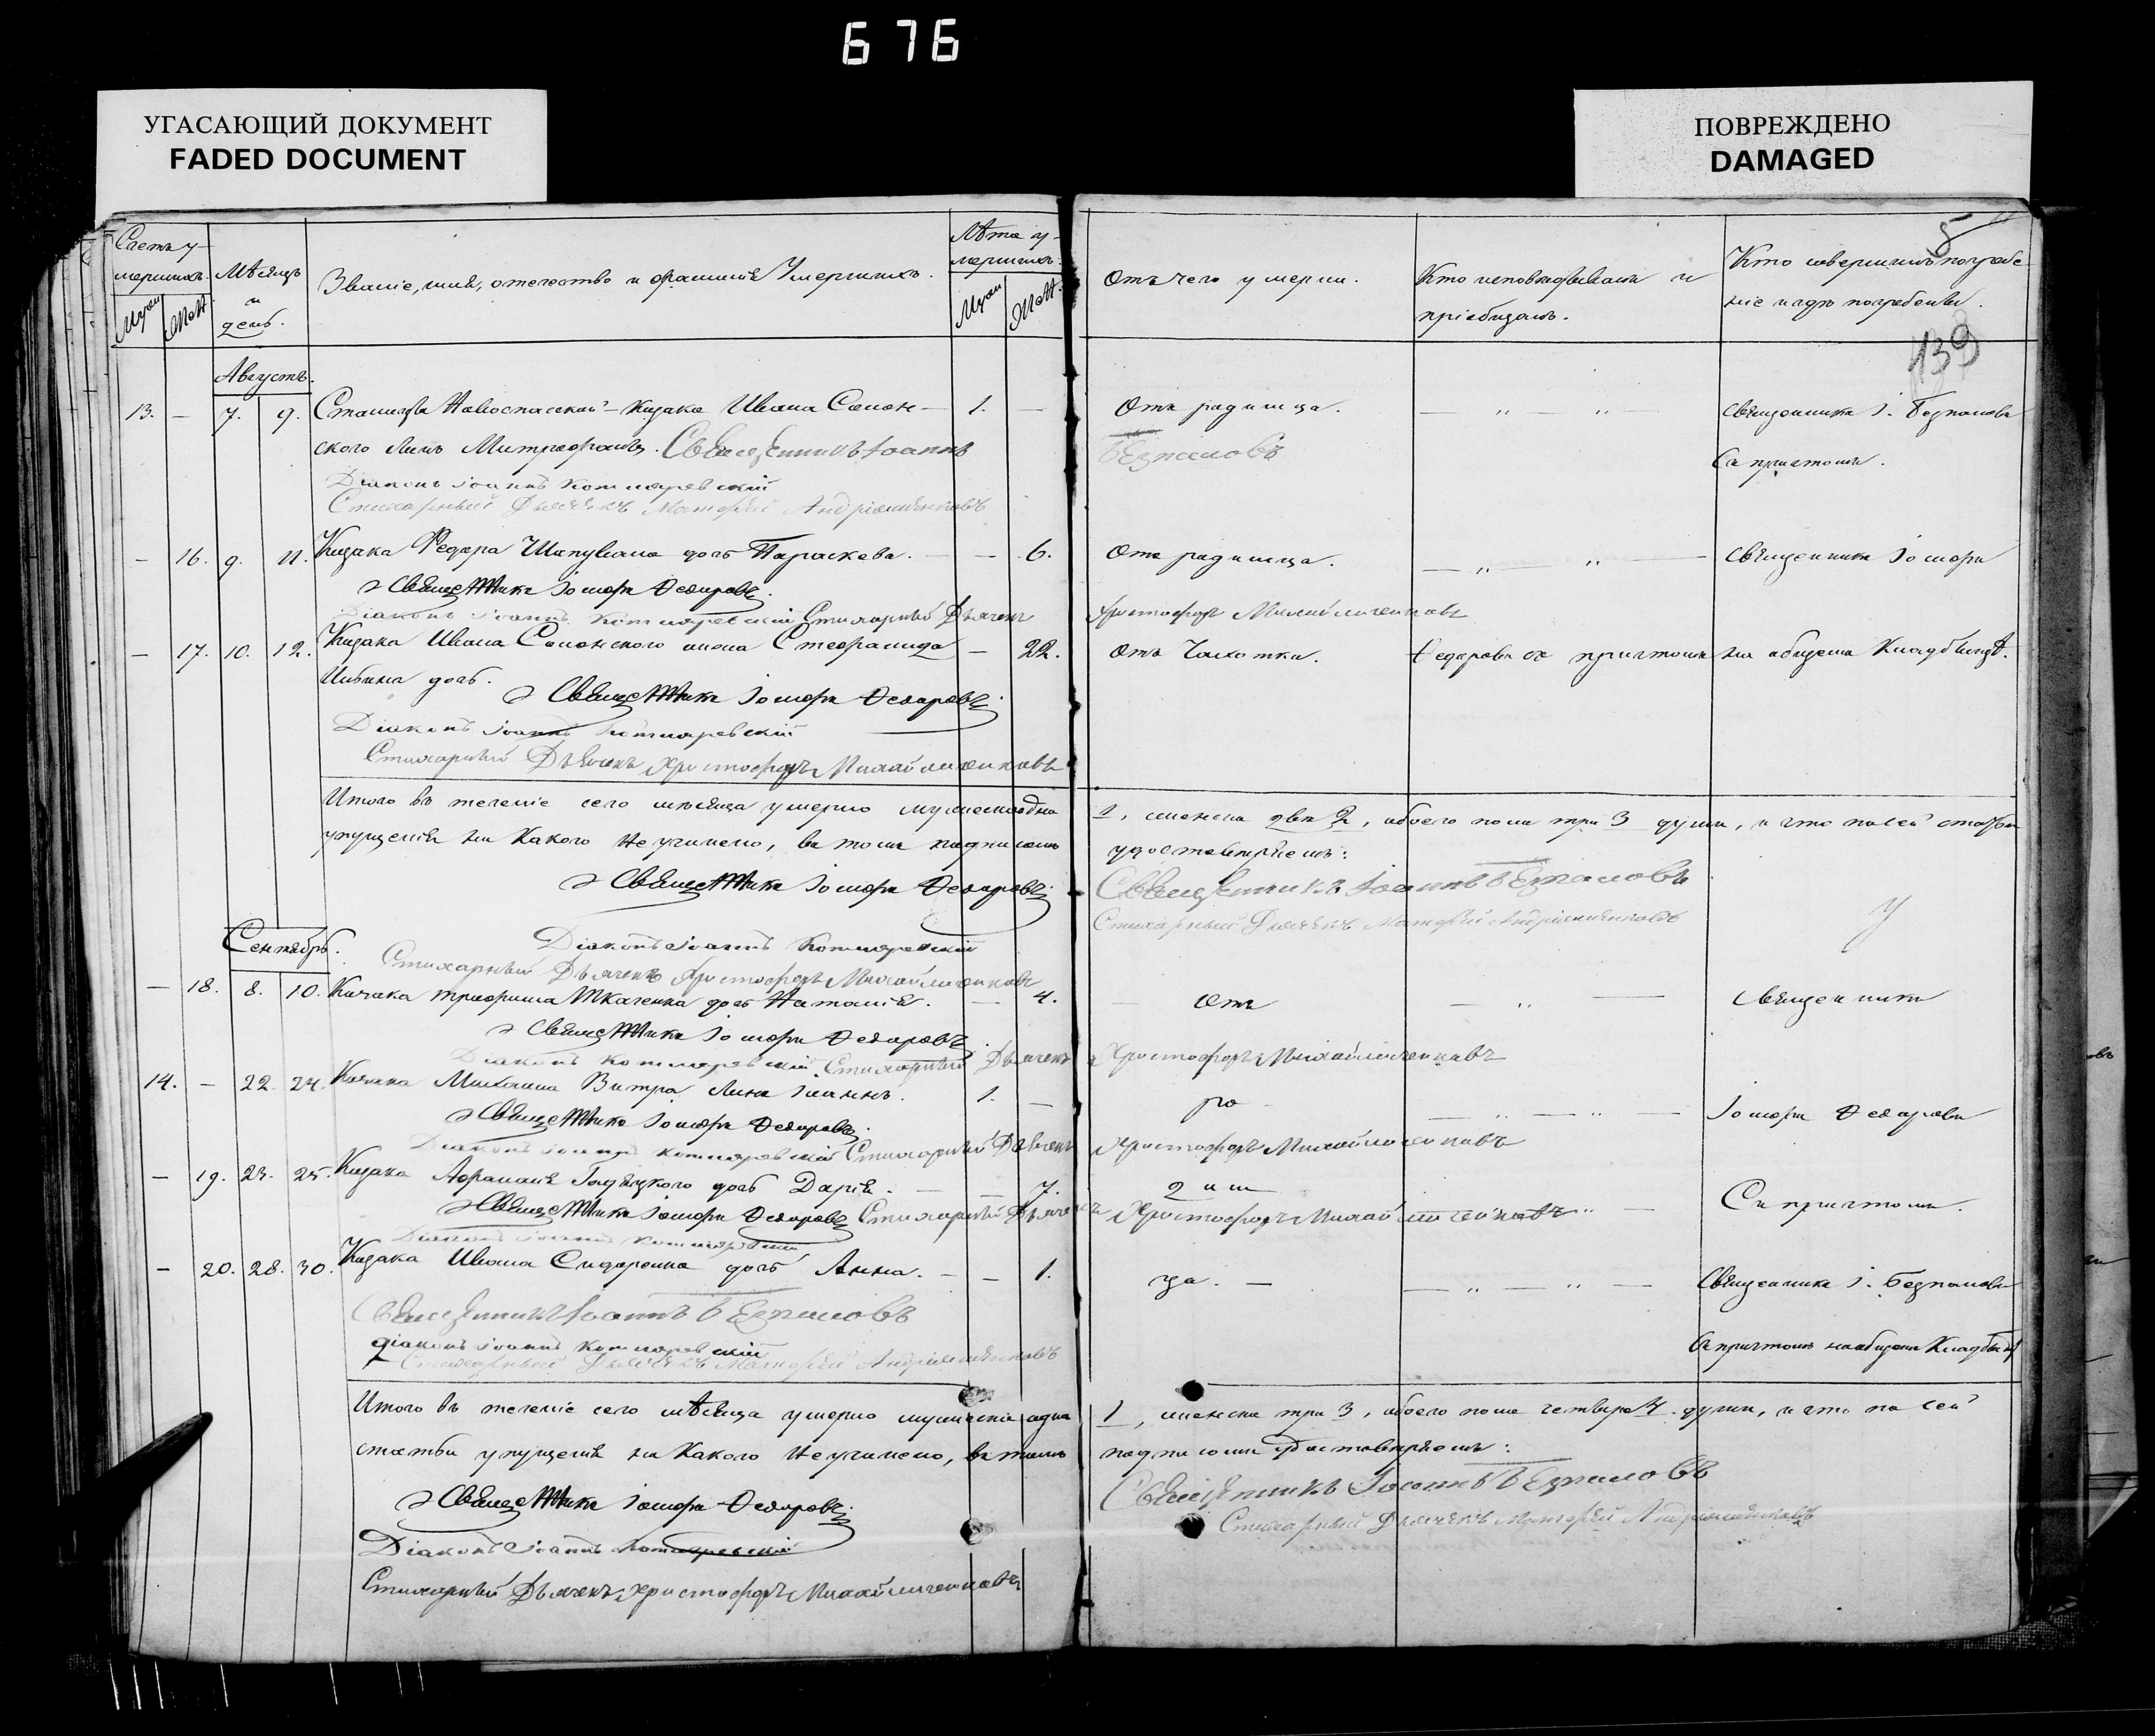 676
УГАСАЮЩИЙ ДОКУМЕНТ
FADED DOCUMENT
ПОВРЕЖДЕНО
DAMAGED
5
139
Счетъ умершихъ.
Муж
Жен
Мѣсяцъ и день.
Званіе, имя, отечество и фамилія Умершихъ.
Лѣта умершихъ.
Муж
Жен.
Отъ чего умерли.
Кто исповѣдывалъ и пріобщалъ.
Кто совершилъ погребеніе и гдѣ погребены.
Августъ.
13. — 7. 9. Станицы Новоспаской Козака Ивана Солон- 1. — Отъ родимца. — „ — „ — священникъ І. Безпаловъ
ского сынъ Митрофанъ. Священникъ Іоаннъ Безпаловъ Съ причтомъ.
Діаконъ Іоаннъ Котляревскій
Стихарный Дьячекъ Матфей Андріяшенковъ
— 16. 9. 11. Козака Федора дочь Параскева. — — 6. Отъ родимца. — „ — „ — священникъ Іосифъ
Священникъ Іосифъ Федоровъ.
Діаконъ Іоаннъ Котляревскій Стихарный Дьячекъ Христофоръ Михайличенковъ
— 17. 10. 12. Козака Ивана Солонского жена Стефанида — 22. Отъ Чахотки. Федоровъ съ причтомъ на общемъ Кладбищѣ.
дочь. Священникъ Іосифъ Федоровъ.
Діаконъ Іоаннъ Котляревскій
Стихарный Дьячекъ Христофоръ Михайличенковъ
Итого въ теченіе сего мѣсяца умерло мужеска одна 1, женска двѣ 2, обоего пола три 3 души, и что по сей статьи
упущенія ни какого не учинено, въ томъ подписомъ удостовѣряемъ:
Священникъ Іосифъ Федоровъ. Священникъ Іоаннъ Безпаловъ
Стихарный Дьячекъ Матфей Андріяшенковъ
Діаконъ Іоаннъ Котляревскій
Стихарный Дьячекъ Христофоръ Михайличенковъ
Сентябрь.
— 18. 8. 10. Козака Трофима Ткаченка дочь Наталія. — 4. — Отъ — „ — Священникъ
Священникъ Іосифъ Федоровъ.
Діаконъ Котляревскій Стихарный Дьячекъ Христофоръ Михайличенковъ
14. — 22. 24. Козака Михаила сынъ Іоаннъ. 1. — ро — „ — „ — Іосифъ Федоровъ
Священникъ Іосифъ Федоровъ.
Діаконъ Іоаннъ Котляревскій Стихарный Дьячекъ Христофоръ Михайличенковъ
— 19. 23. 25. Козака Афанасія дочь Дарія. — — 7. дим Съ причтомъ.
Священникъ Іосифъ Федоровъ Стихарный Дьячекъ Христофоръ Михайличенковъ
Діаконъ Іоаннъ Котляревскій
— 20. 28. 30. Козака Ивана Сидоренка дочь Анна. — — 1. ца. — — „ — „ — Священникъ І. Безпаловъ
Священникъ Іоаннъ Безпаловъ
Діаконъ Іоаннъ Котляревскій Съ причтомъ на общемъ Кладбищѣ
Стихарный Дьячекъ Матфей Андріяшенковъ
Итого въ теченіе сего мѣсяца умерло мужеска одна 1, женска три 3, обоего пола четверо 4. души, и что по сей
статьи упущенія ни какого не учинено, въ томъ подписомъ удостовѣряемъ:
Священникъ Іосифъ Федоровъ. Священникъ Іоаннъ Безпаловъ
Стихарный Дьячекъ Матфей Андріяшенковъ
Діаконъ Іоаннъ Котляревскій
Стихарный Дьячекъ Христофоръ Михайличенковъ